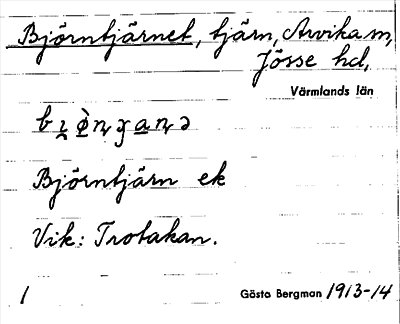 Björntjärnet, tjärn, Arvika m,
Jösse hd,
Värmlands län
Björntjärn ek
Vik: Trotakan.
1 Gösta Bergman 1913-14